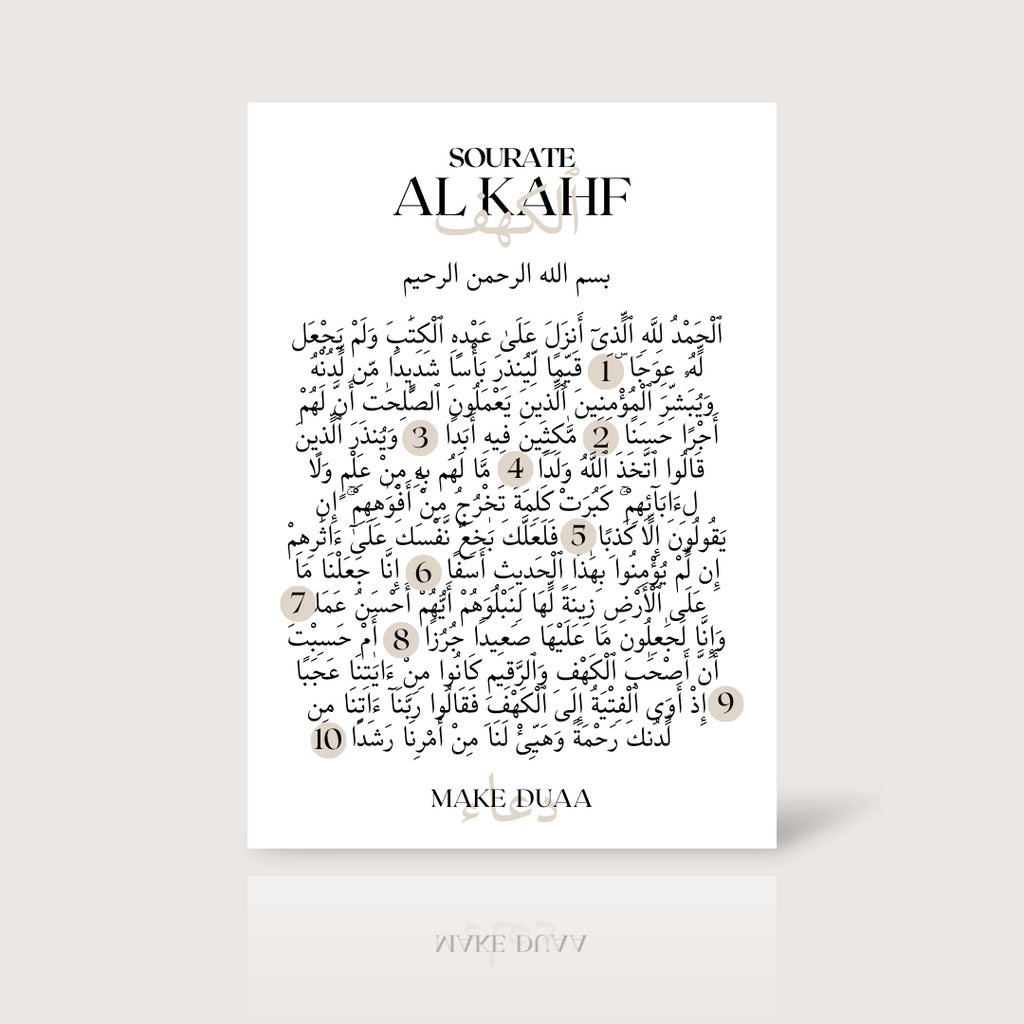 SOURATE
AL KAHF
ٱلكهف
بسم الله الرحمن الرحيم
ٱلْحَمْدُ لِلَّهِ ٱلَّذِىٓ أَنزَلَ عَلَىٰ عَبْدِهِ ٱلْكِتَٰبَ وَلَمْ يَجْعَل
لَّهُۥ عِوَجَا ۜ 1 قَيِّمًا لِّيُنذِرَ بَأْسًا شَدِيدًا مِّن لَّدُنْهُ
وَيُبَشِّرَ ٱلْمُؤْمِنِينَ ٱلَّذِينَ يَعْمَلُونَ ٱلصَّٰلِحَٰتِ أَنَّ لَهُمْ
أَجْرًا حَسَنًا 2 مَّٰكِثِينَ فِيهِ أَبَدًا 3 وَيُنذِرَ ٱلَّذِينَ
قَالُوا ٱتَّخَذَ ٱللَّهُ وَلَدًا 4 مَّا لَهُم بِهِۦ مِنْ عِلْمٍ وَلَا
لِءَابَآئِهِمْ ۚ كَبُرَتْ كَلِمَةً تَخْرُجُ مِنْ أَفْوَٰهِهِمْ ۚ إِن
يَقُولُونَ إِلَّا كَذِبًا 5 فَلَعَلَّكَ بَٰخِعٌ نَّفْسَكَ عَلَىٰٓ ءَاثَٰرِهِمْ
إِن لَّمْ يُؤْمِنُوا بِهَٰذَا ٱلْحَدِيثِ أَسَفًا 6 إِنَّا جَعَلْنَا مَا
عَلَى ٱلْأَرْضِ زِينَةً لَّهَا لِنَبْلُوَهُمْ أَيُّهُمْ أَحْسَنُ عَمَلًا 7
وَإِنَّا لَجَٰعِلُونَ مَا عَلَيْهَا صَعِيدًا جُرُزًا 8 أَمْ حَسِبْتَ
أَنَّ أَصْحَٰبَ ٱلْكَهْفِ وَٱلرَّقِيمِ كَانُوا مِنْ ءَايَٰتِنَا عَجَبًا
9 إِذْ أَوَى ٱلْفِتْيَةُ إِلَى ٱلْكَهْفِ فَقَالُوا رَبَّنَآ ءَاتِنَا مِن
لَّدُنكَ رَحْمَةً وَهَيِّئْ لَنَا مِنْ أَمْرِنَا رَشَدًا 10
MAKE DUAA
دعاء